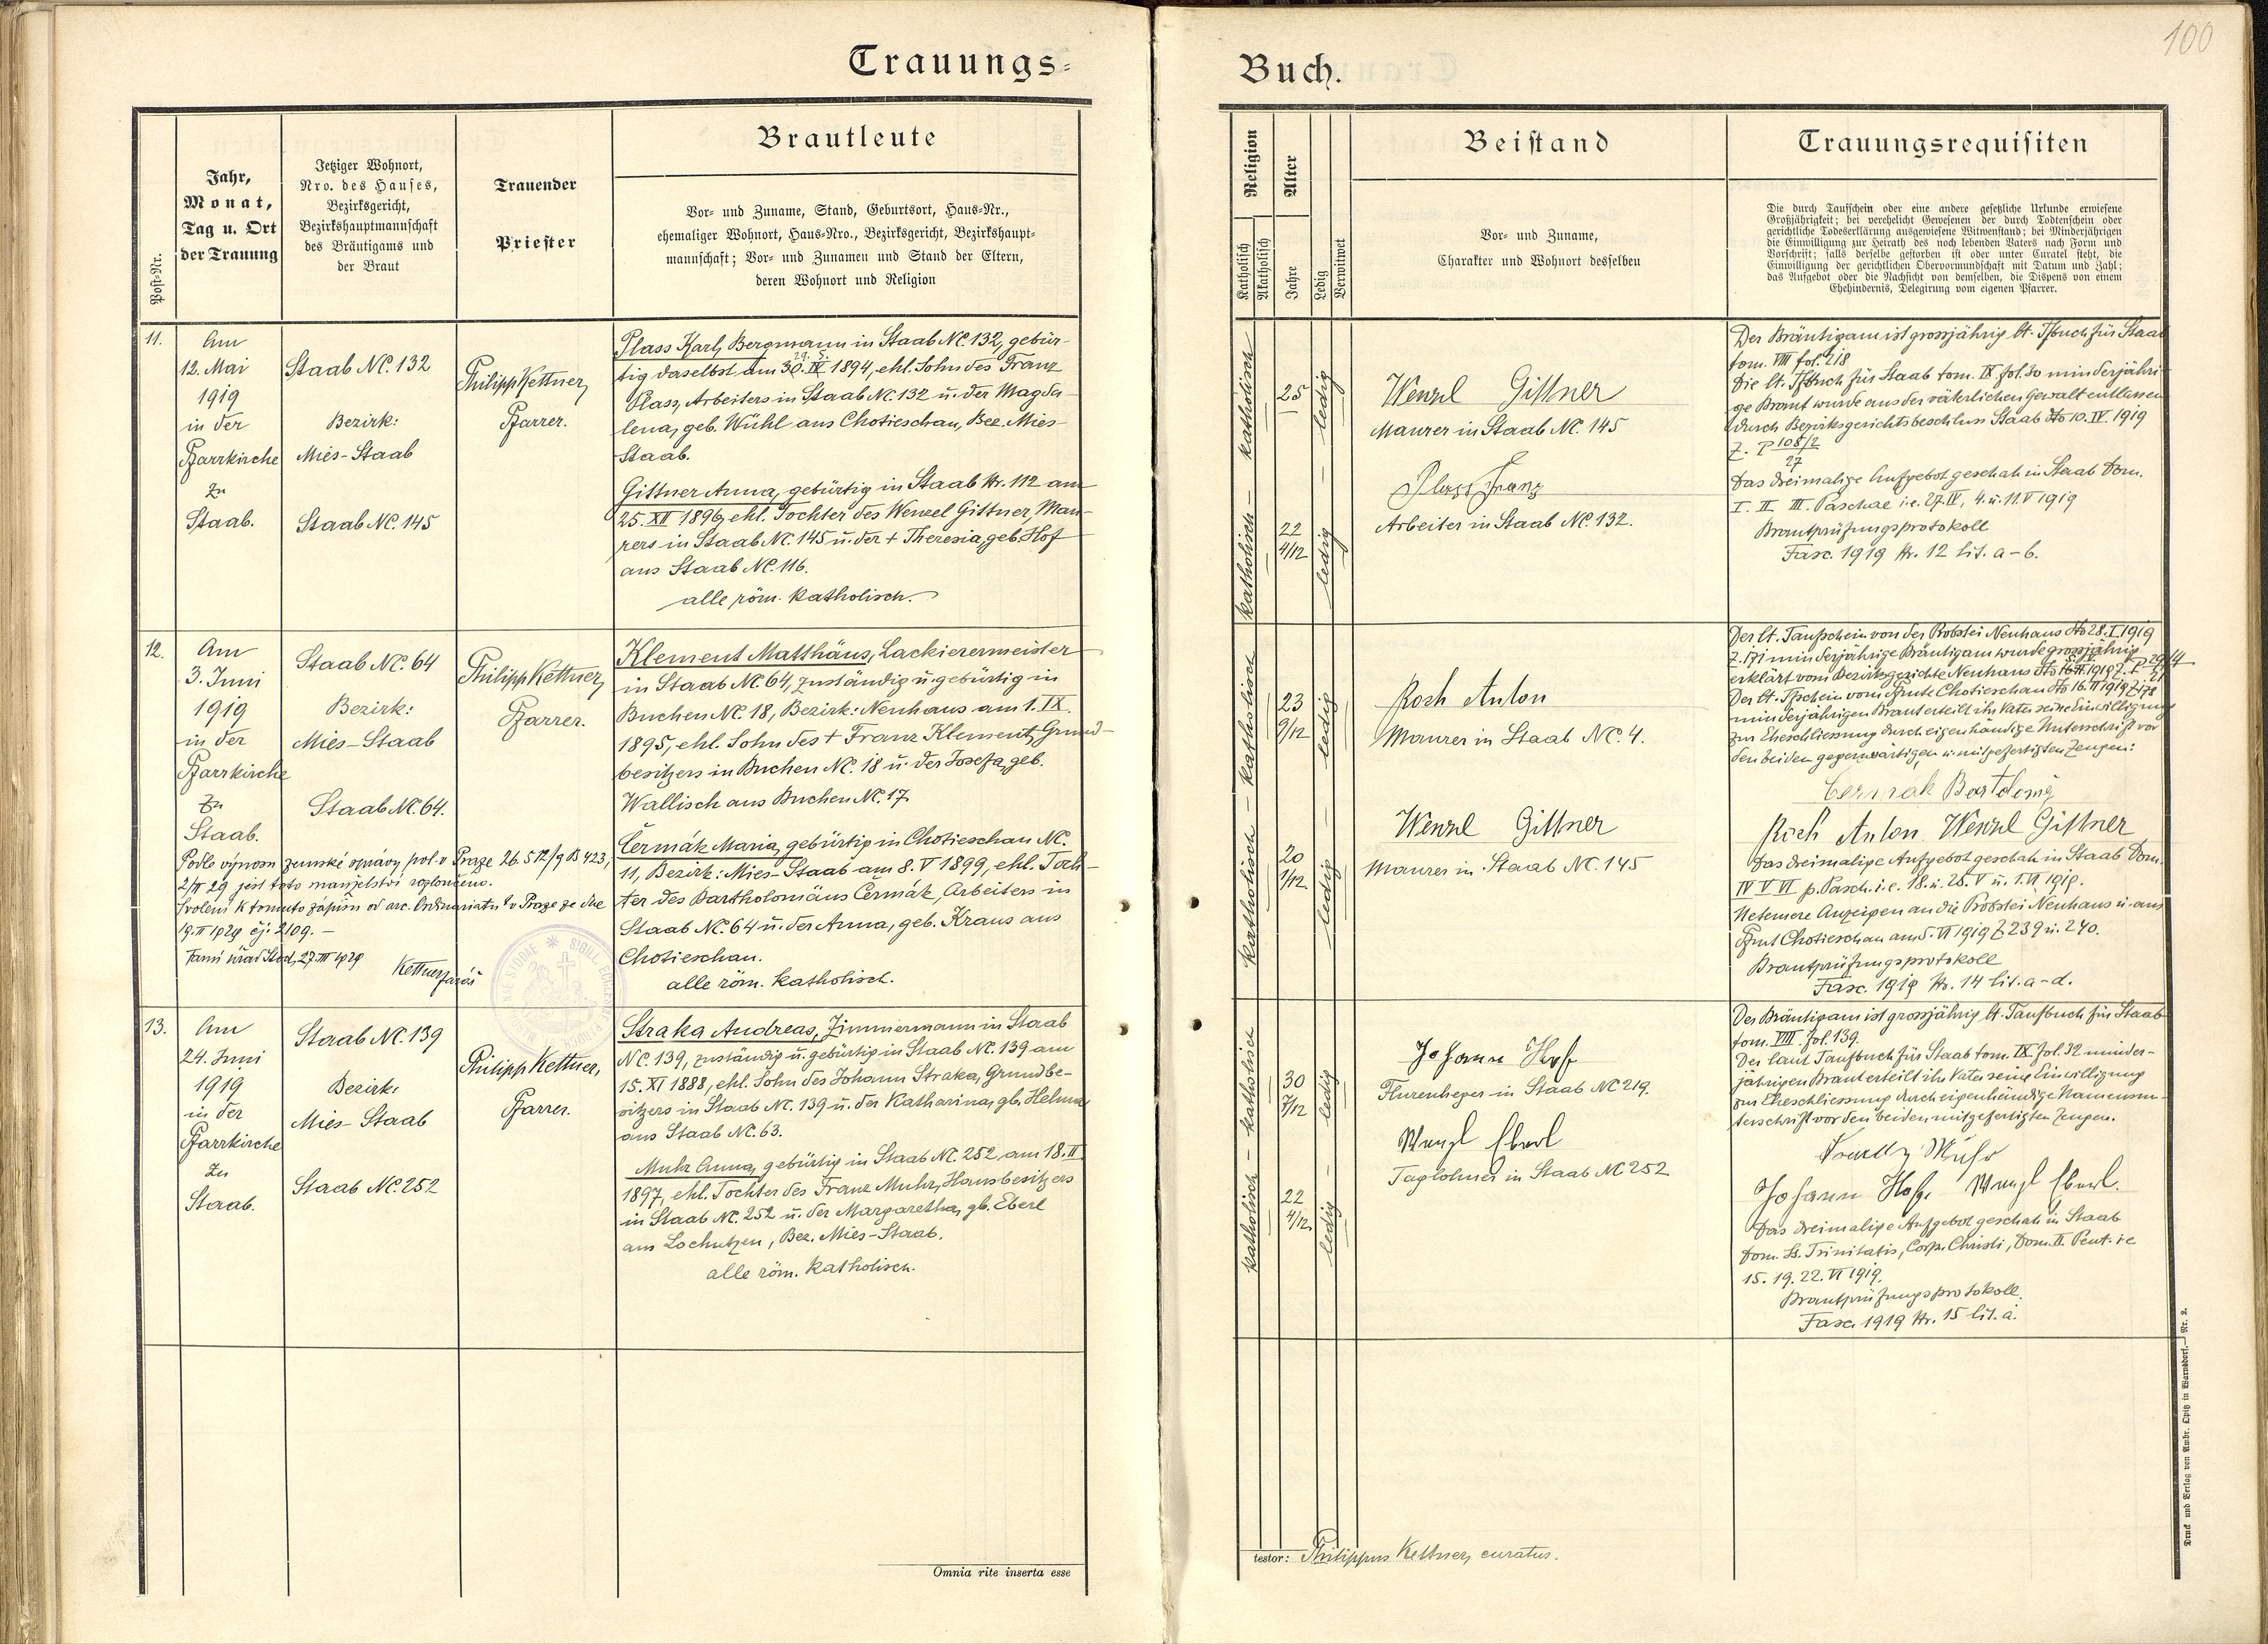 100
Trauungs-
Buch.
Post-Nr.
Jahr,
Monat,
Tag u. Ort
der Trauung
Jetziger Wohnort,
Nro. des Hauses,
Bezirksgericht,
Bezirkshauptmannschaft
des Bräutigams und
der Braut
Trauender
Priester
Brautleute
Vor- und Zuname, Stand, Geburtsort, Haus-Nr.,
ehemaliger Wohnort, Haus-Nro., Bezirksgericht, Bezirkshaupt-
mannschaft; Vor- und Zunamen und Stand der Eltern,
deren Wohnort und Religion
Religion
Katholisch
Akatholisch
Alter
Jahre
Ledig
Verwitwet
Beistand
Vor- und Zuname,
Charakter und Wohnort desselben
Trauungsrequisiten
Die durch Taufschein oder eine andere gesetzliche Urkunde erwiesene
Großjährigkeit; bei verehelicht Gewesenen der durch Todtenschein oder
gerichtliche Todeserklärung ausgewiesene Witwenstand; bei Minderjährigen
die Einwilligung zur Heirath des noch lebenden Vaters nach Form und
Vorschrift; falls derselbe gestorben ist oder unter Curatel steht, die
Einwilligung der gerichtlichen Obervormundschaft mit Datum und Zahl;
das Aufgebot oder die Nachsicht von demselben, die Dispens von einem
Ehehindernis, Delegirung vom eigenen Pfarrer.
11.
Am
12. Mai
1919
in der
Pfarrkirche
zu
Staab.
Staab NC. 132
Bezirk:
Mies-Staab
Staab NC. 145
Philipp Kettner,
Pfarrer.
Plass Karl, Bergmann in Staab NC. 132, gebür-
29. 5.
tig daselbst am 30. IV 1894, ehl. Sohn des Franz
Plass, Arbeiters in Staab NC. 132 u. der Magda-
lena, geb. Wühl aus Chotieschau, Bez. Mies-
Staab.
Gittner Anna, gebürtig in Staab Nr. 112 am
25. XII 1896, ehl. Tochter des Wenzel Gittner, Mau-
rers in Staab NC. 145 u. der + Theresia, geb. Hof
aus Staab NC. 116.
alle röm. katholisch.
katholisch - katholisch
25
22
4/12
ledig - ledig
Wenzl Gittner
Maurer in Staab NC. 145
Plass Franz
Arbeiter in Staab NC. 132.
Der Bräutigam ist grossjährig lt. Tfbuch für Staab
tom. VIII fol. 218
Die lt. Tfbuch für Staab tom. IX fol. 30 minderjähri-
ge Braut wurde aus der väterlichen Gewalt entlassen
durch Bezirksgerichtsbeschluss Staab dto 10. IV. 1919
Z. P 108/2
27
Das dreimalige Aufgebot geschah in Staab Dom.
I. II. III. Paschae i.e. 27. IV, 4. u. 11. V 1919
Brautprüfungsprotokoll
Fasc. 1919 Nr. 12 lit. a-b.
12.
Am
3. Juni
1919
in der
Pfarrkirche
zu
Staab.
Staab NC. 64
Bezirk:
Mies-Staab
Staab NC. 64.
Philipp Kettner,
Pfarrer.
Podle výnosu zemské správy pol. v Praze 26. 512/9 B 423,
2/II 29 jest toto manželství rozloučeno.
Svolení k tomuto zápisu od arc. Ordinariatu v Praze ze dne
19. II 1929 čj: 2109. -
Farní úřad Stod, 27. III 1929
Kettner farář
Klement Matthäus, Lackierermeister
in Staab NC. 64, zuständig u. gebürtig in
Buchen NC. 18, Bezirk: Neuhaus am 1. IX.
1895, ehl. Sohn des + Franz Klement, Grund-
besitzers in Buchen NC. 18 u. der Josefa, geb.
Wallisch aus Buchen NC. 17
Čermák Maria, gebürtig in Chotieschau NC.
11, Bezirk: Mies-Staab am 8. V 1899, ehl. Toch-
ter des Bartholomäus Čermák, Arbeiters in
Staab NC. 64 u. der Anna, geb. Kraus aus
Chotieschau.
alle röm. katholisch.
katholisch - katholisch
23
9/12
20
1/12
ledig - ledig
Roch Anton
Maurer in Staab NC. 4.
Wenzl Gittner
Maurer in Staab NC. 145
Der lt. Taufschein von der Probstei Neuhaus dto 28. I 1919
Z. 171 minderjährige Bräutigam wurde grossjährig
erklärt vom Bezirksgerichte Neuhaus
Der lt. Tfschein vom Pfamte Chotieschau dto 16. II 1919 Z. 178
minderjährigen Braut erteilt ihr Vater seine Einwilligung
zur Eheschliessung durch eigenhändige Unterschrift vor
den beiden gegenwärtigen u. mitgefertigten Zeugen:
Čermak Bartoloměj
Roch Anton Wenzl Gittner
Das dreimalige Aufgebot geschah in Staab Dom.
IV V VI p. Pasch. i.e. 18. u. 25. V u. 1. VI 1919.
Anzeigen an die Probstei Neuhaus u. ans
Pfamt Chotieschau am 5. VI 1919 Z 239 u. 240.
Brautprüfungsprotokoll
Fasc. 1919 Nr. 14 lit. a-d.
13.
Am
24. Juni
1919
in der
Pfarrkirche
zu
Staab.
Staab NC. 139
Bezirk:
Mies-Staab
Staab NC. 252
Philipp Kettner,
Pfarrer.
Straka Andreas, Zimmermann in Staab
NC. 139, zuständig u. gebürtig in Staab NC. 139 am
15. XI 1888, ehl. Sohn des Johann Straka, Grundbe-
sitzers in Staab NC. 139 u. der Katharina, gb. Helma
aus Staab NC. 63.
Muhr Anna, gebürtig in Staab NC. 252 am 18. II
1897, ehl. Tochter des Franz Muhr, Hausbesitzers
in Staab NC. 252 u. der Margaretha, gb. Eberl
aus Lochutzen, Bez. Mies-Staab.
alle röm. katholisch.
katholisch - katholisch
30
7/12
22
4/12
ledig - ledig
Johann Hof
Flurenheger in Staab NC 219.
Wenzl Eberl
Taglöhner in Staab NC 252
Der Bräutigam ist grossjährig lt. Taufbuch für Staab
tom. VIII. fol. 139.
Der laut Taufbuch für Staab tom. IX fol. 32 minder-
jährigen Braut erteilt ihr Vater seine Einwilligung
zur Eheschliessung durch eigenhändige Namensun-
terschrift vor den beiden mitgefertigten Zeugen.
Muhr
Johann Hof Wenzl Eberl.
Das dreimalige Aufgebot geschah in Staab
Dom. Ss. Trinitatis, Corp. Christi, Dom. II. Pent. i.e
15. 19. 22. VI 1919.
Brautprüfungsprotokoll.
Fasc. 1919 Nr. 15 lit. a.
Omnia rite inserta esse
testor: Philippus Kettner, curatus.
Druck und Verlag von Ambr. Opitz in Warnsdorf. - Nr. 2.